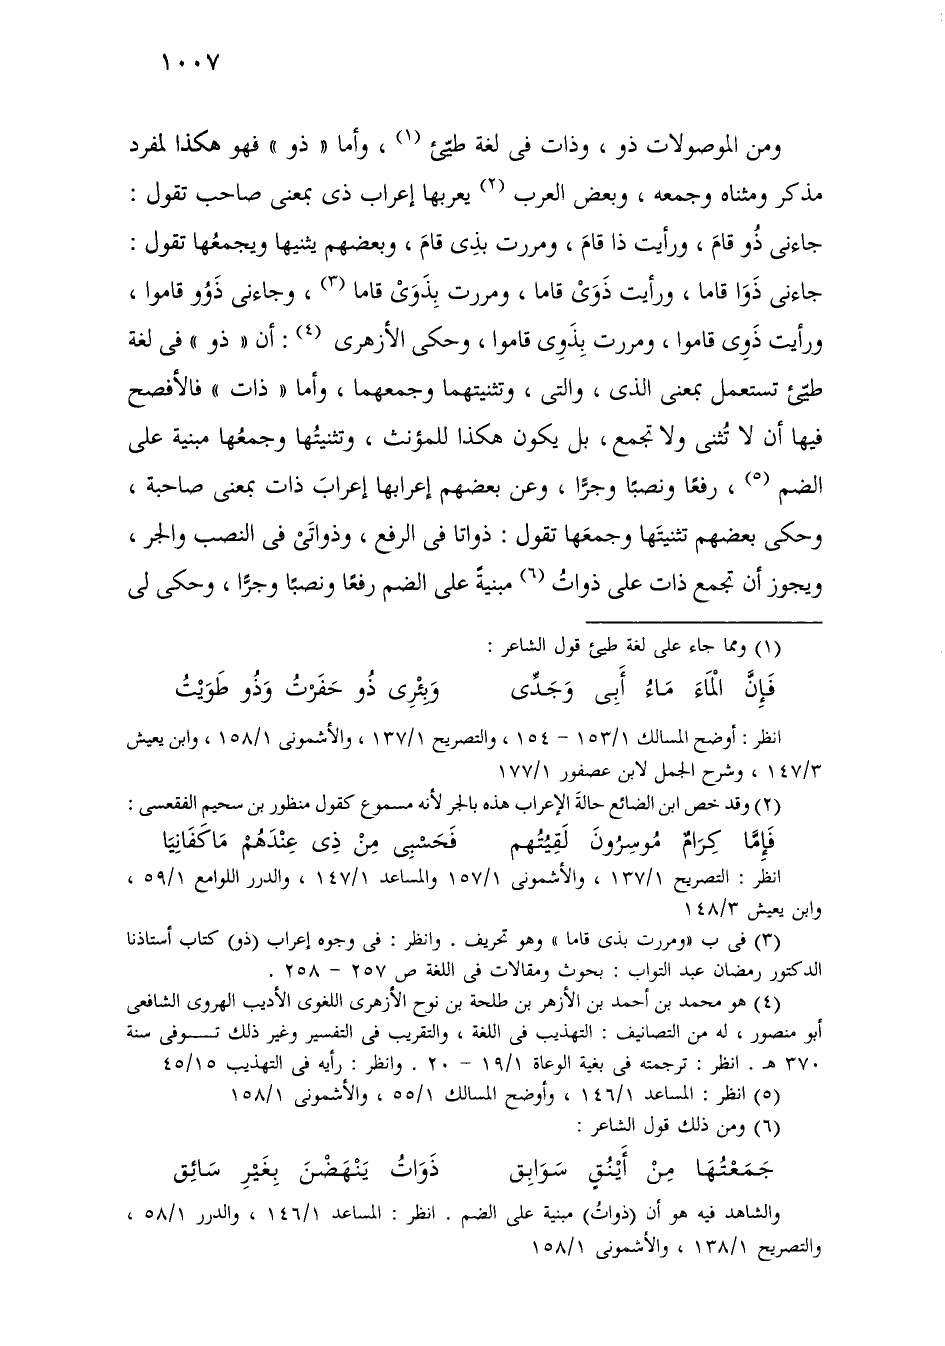 ١٠٠٧
ومن الموصولات ذو ، وذات فى لغة طيّئ (١) ، وأما « ذو » فهو هكذا لمفرد
مذكر ومثناه وجمعه ، وبعض العرب (٢) يعربها إعراب ذى بمعنى صاحب تقول :
جاءنى ذُو قامَ ، ورأيت ذا قامَ ، ومررت بذِى قامَ ، وبعضهم يثنيها ويجمعُها تقول :
جاءنى ذَوَا قاما ، ورأيت ذَوَىْ قاما ، ومررت بِذَوَىْ قاما (٣) ، وجاءنى ذَوُو قاموا ،
ورأيت ذَوِى قاموا ، ومررت بِذَوِى قاموا ، وحكى الأزهرى (٤) : أن « ذو » فى لغة
طيّئ تستعمل بمعنى الذى ، والتى ، وتثنيتهما وجمعهما ، وأما « ذات » فالأفصح
فيها أن لا تُثنى ولا تجمع ، بل يكون هكذا للمؤنث ، وتثنيتُها وجمعُها مبنية على
الضم (٥) ، رفعًا ونصبًا وجرًّا ، وعن بعضهم إعرابها إعرابَ ذات بمعنى صاحبة ،
وحكى بعضهم تثنيتَها وجمعَها تقول : ذواتا فى الرفع ، وذواتَىْ فى النصب والجر ،
ويجوز أن تجمع ذات على ذواتُ (٦) مبنيةً على الضم رفعًا ونصبًا وجرًّا ، وحكى لى
(١) ومما جاء على لغة طيئ قول الشاعر :
فَإِنَّ الْمَاءَ مَاءُ أَبِى وَجَدِّى وَبِئْرِى ذُو حَفَرْتُ وَذُو طَوَيْتُ
انظر : أوضح المسالك ١٥٣/١ - ١٥٤ ، والتصريح ١٣٧/١ ، والأشمونى ١٥٨/١ ، وابن يعيش
١٤٧/٣ ، وشرح الجمل لابن عصفور ١٧٧/١
(٢) وقد خص ابن الضائع حالةَ الإعراب هذه بالجر لأنه مسموع كقول منظور بن سحيم الفقعسى :
فَإِمَّا كِرَامٌ مُوسِرُونَ لَقِيتُهم فَحَسْبِى مِنْ ذِى عِنْدَهُمْ مَاكَفَانِيَا
انظر : التصريح ١٣٧/١ ، والأشمونى ١٥٧/١ والمساعد ١٤٧/١ ، والدرر اللوامع ٥٩/١ ،
وابن يعيش ١٤٨/٣
(٣) فى ب «ومررت بذى قاما » وهو تحريف . وانظر : فى وجوه إعراب (ذو) كتاب أستاذنا
الدكتور رمضان عبد التواب : بحوث ومقالات فى اللغة ص ٢٥٧ - ٢٥٨ .
(٤) هو محمد بن أحمد بن الأزهر بن طلحة بن نوح الأزهرى اللغوى الأديب الهروى الشافعى
أبو منصور ، له من التصانيف : التهذيب فى اللغة ، والتقريب فى التفسير وغير ذلك تـــوفى سنة
٣٧٠ هـ . انظر : ترجمته فى بغية الوعاة ١٩/١ - ٢٠ . وانظر : رأيه فى التهذيب ٤٥/١٥
(٥) انظر : المساعد ١٤٦/١ ، وأوضح المسالك ٥٥/١ ، والأشمونى ١٥٨/١
(٦) ومن ذلك قول الشاعر :
جَمَعْتُهَا مِنْ أَيْنُقٍ سَوَابِق ذَوَاتُ يَنْهَضْنَ بِغَيْرِ سَائِق
والشاهد فيه هو أن (ذواتُ) مبنية على الضم . انظر : المساعد ١٤٦/١ ، والدرر ٥٨/١ ،
والتصريح ١٣٨/١ ، والأشمونى ١٥٨/١